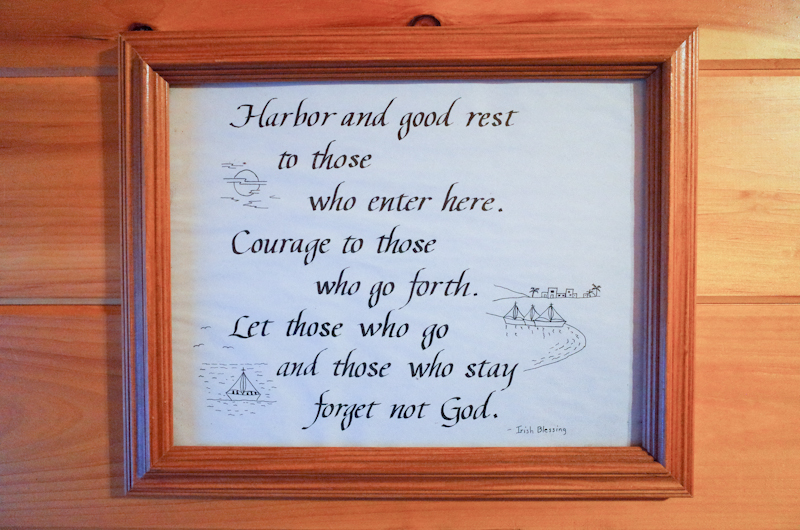 Harbor and good rest
to those
who enter here.
Courage to those
who go forth.
Let those who go
and those who stay
forget not God.
- Irish Blessing